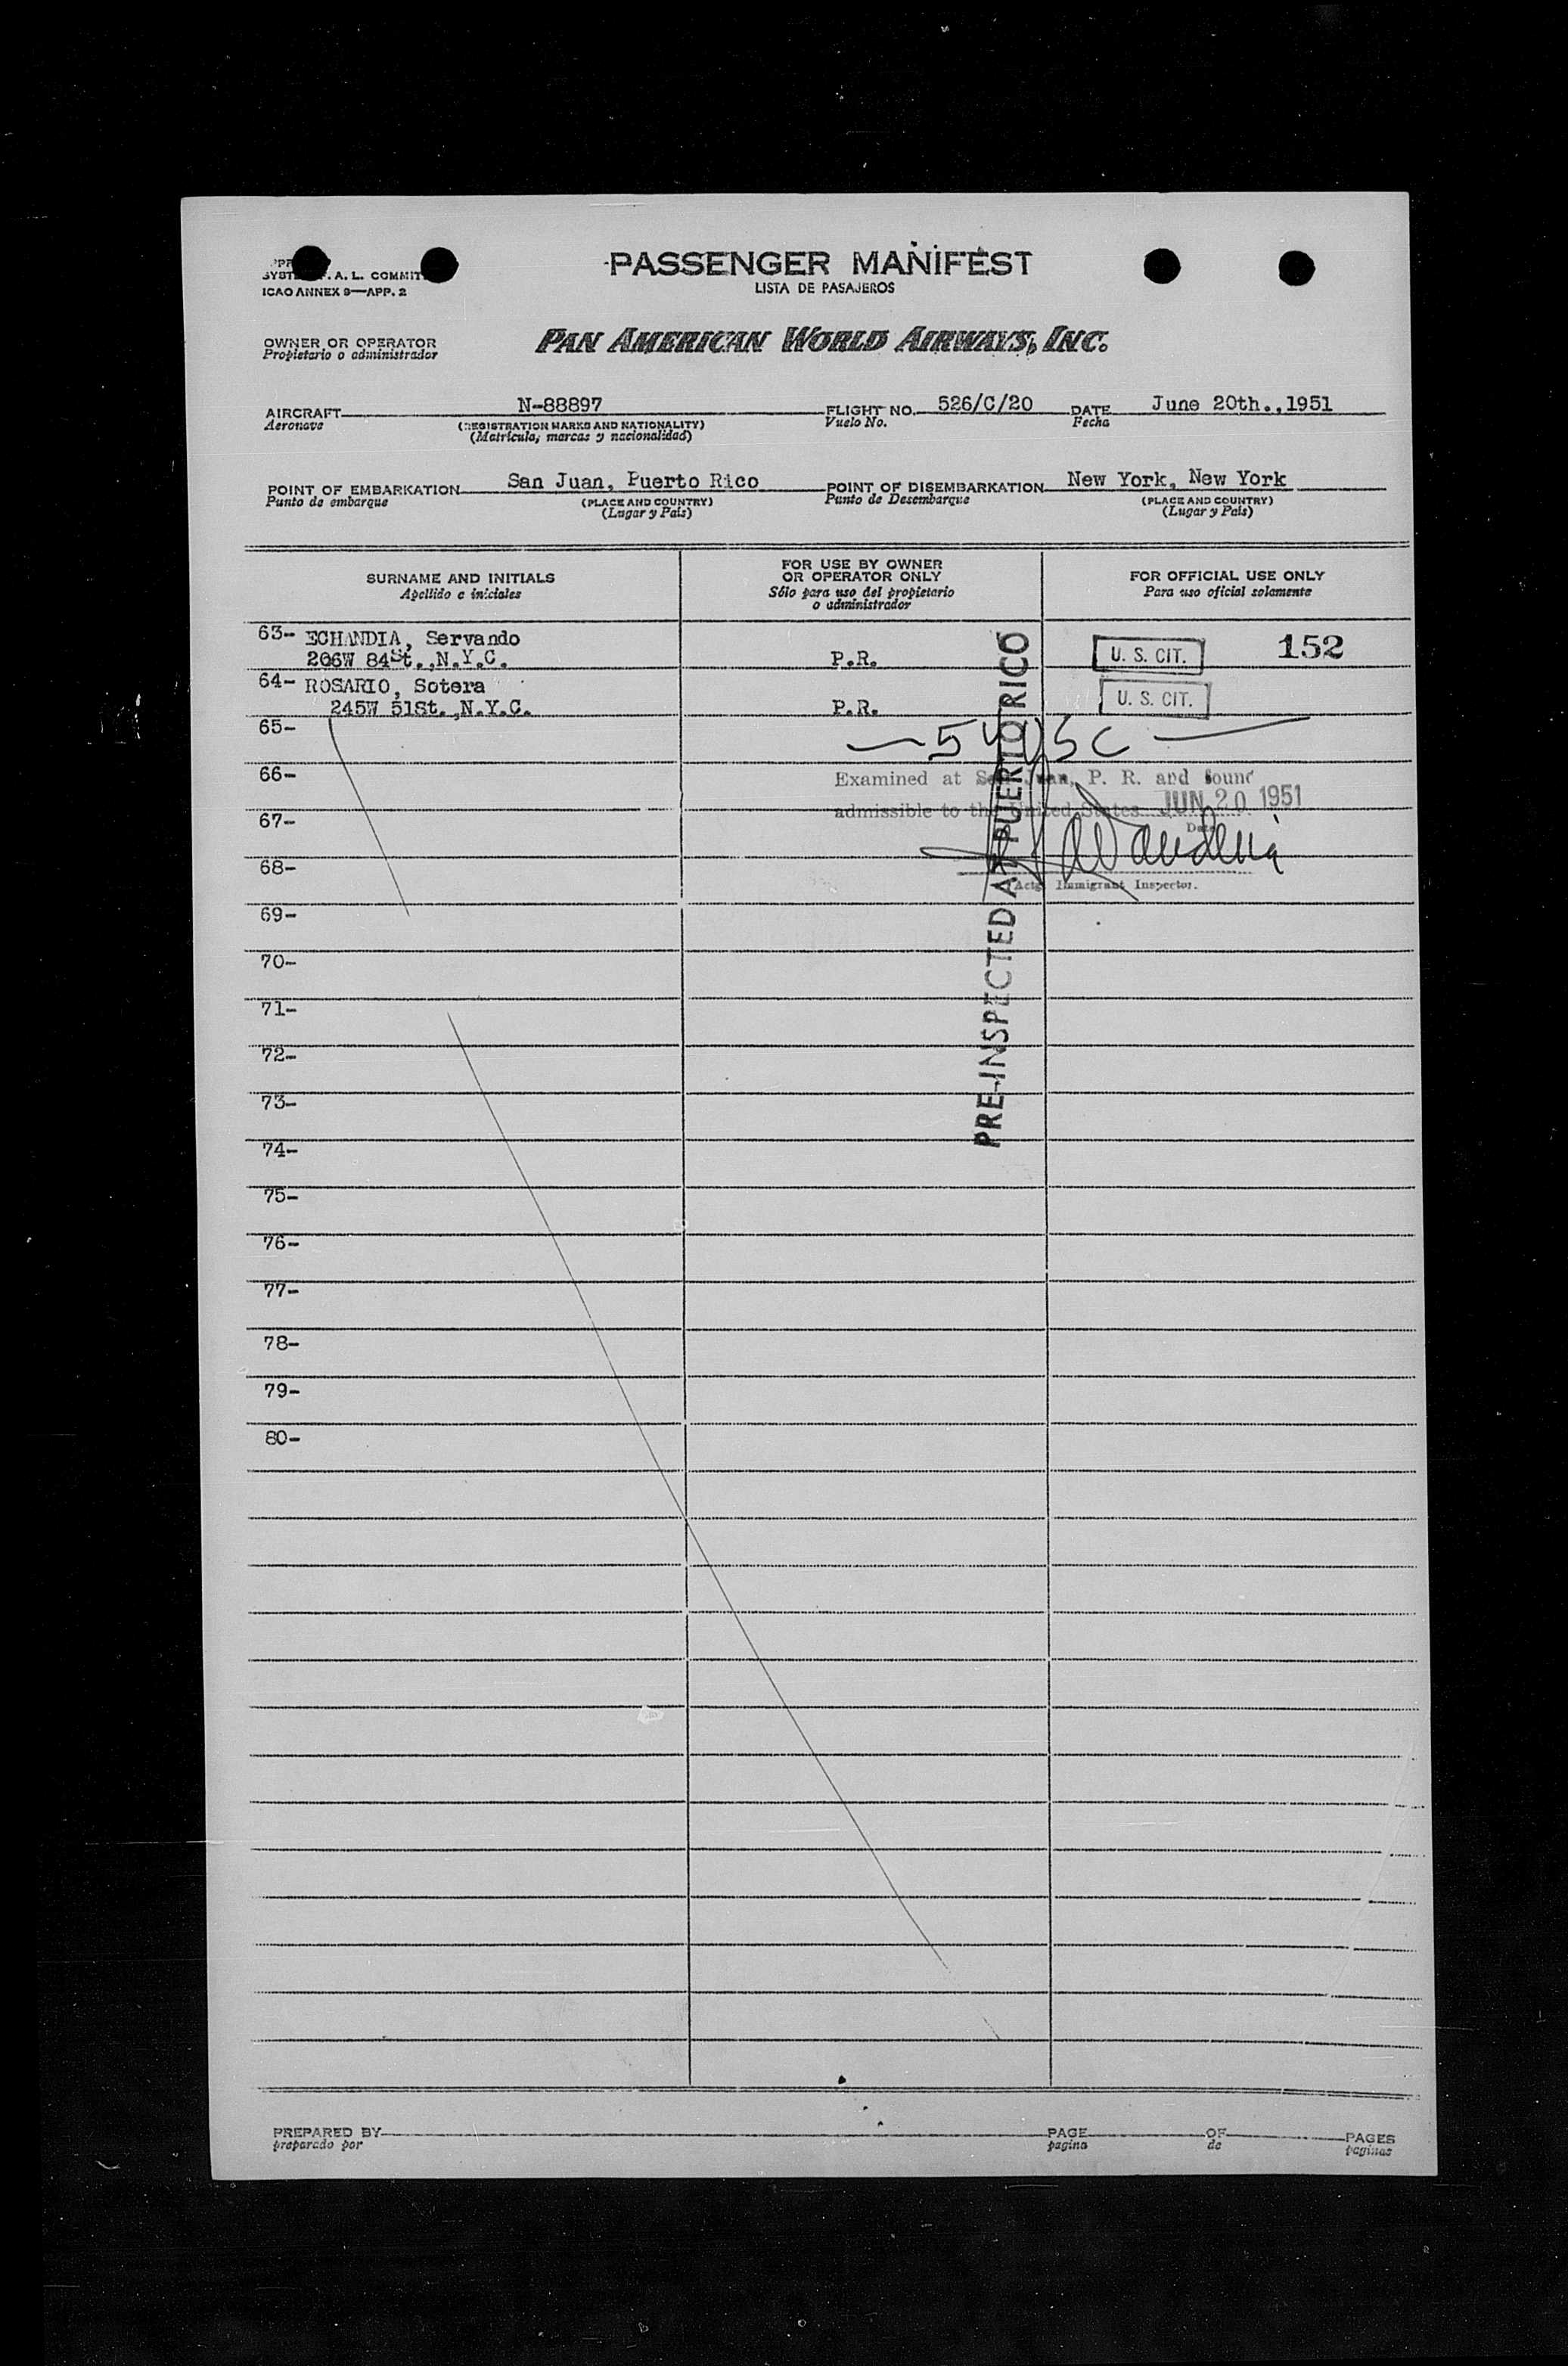 PASSENGER MANIFEST
LISTA DE PASAJEROS
A. L. COMMIT
ICAO ANNEX 9—APP. 2
OWNER OR OPERATOR
Propietario o administrador
PAN AMERICAN WORLD AIRWAYS, INC.
AIRCRAFT N-88897 FLIGHT NO. 526/C/20 DATE June 20th.,1951
Aeronave (REGISTRATION MARKS AND NATIONALITY) Vuelo No. Fecha
(Matrícula, marcas y nacionalidad)
POINT OF EMBARKATION San Juan, Puerto Rico POINT OF DISEMBARKATION New York, New York
Punto de embarque (PLACE AND COUNTRY) Punto de Desembarque (PLACE AND COUNTRY)
(Lugar y País) (Lugar y País)
SURNAME AND INITIALS
Apellido e iniciales
FOR USE BY OWNER
OR OPERATOR ONLY
Sólo para uso del propietario
o administrador
FOR OFFICIAL USE ONLY
Para uso oficial solamente
63- ECHANDIA, Servando
206W 84St.,N.Y.C. P.R. U. S. CIT. 152
64- ROSARIO, Sotera
245W 51St.,N.Y.C. P.R. U. S. CIT.
65-
66-
Examined at San Juan, P. R. and found
admissible to the United States JUN 20 1951
Date
67-
68-
Actg. Immigrant Inspector.
PRE-INSPECTED AT PUERTO RICO
69-
70-
71-
72-
73-
74-
75-
76-
77-
78-
79-
80-
PREPARED BY PAGE OF PAGES
preparado por pagina de paginas